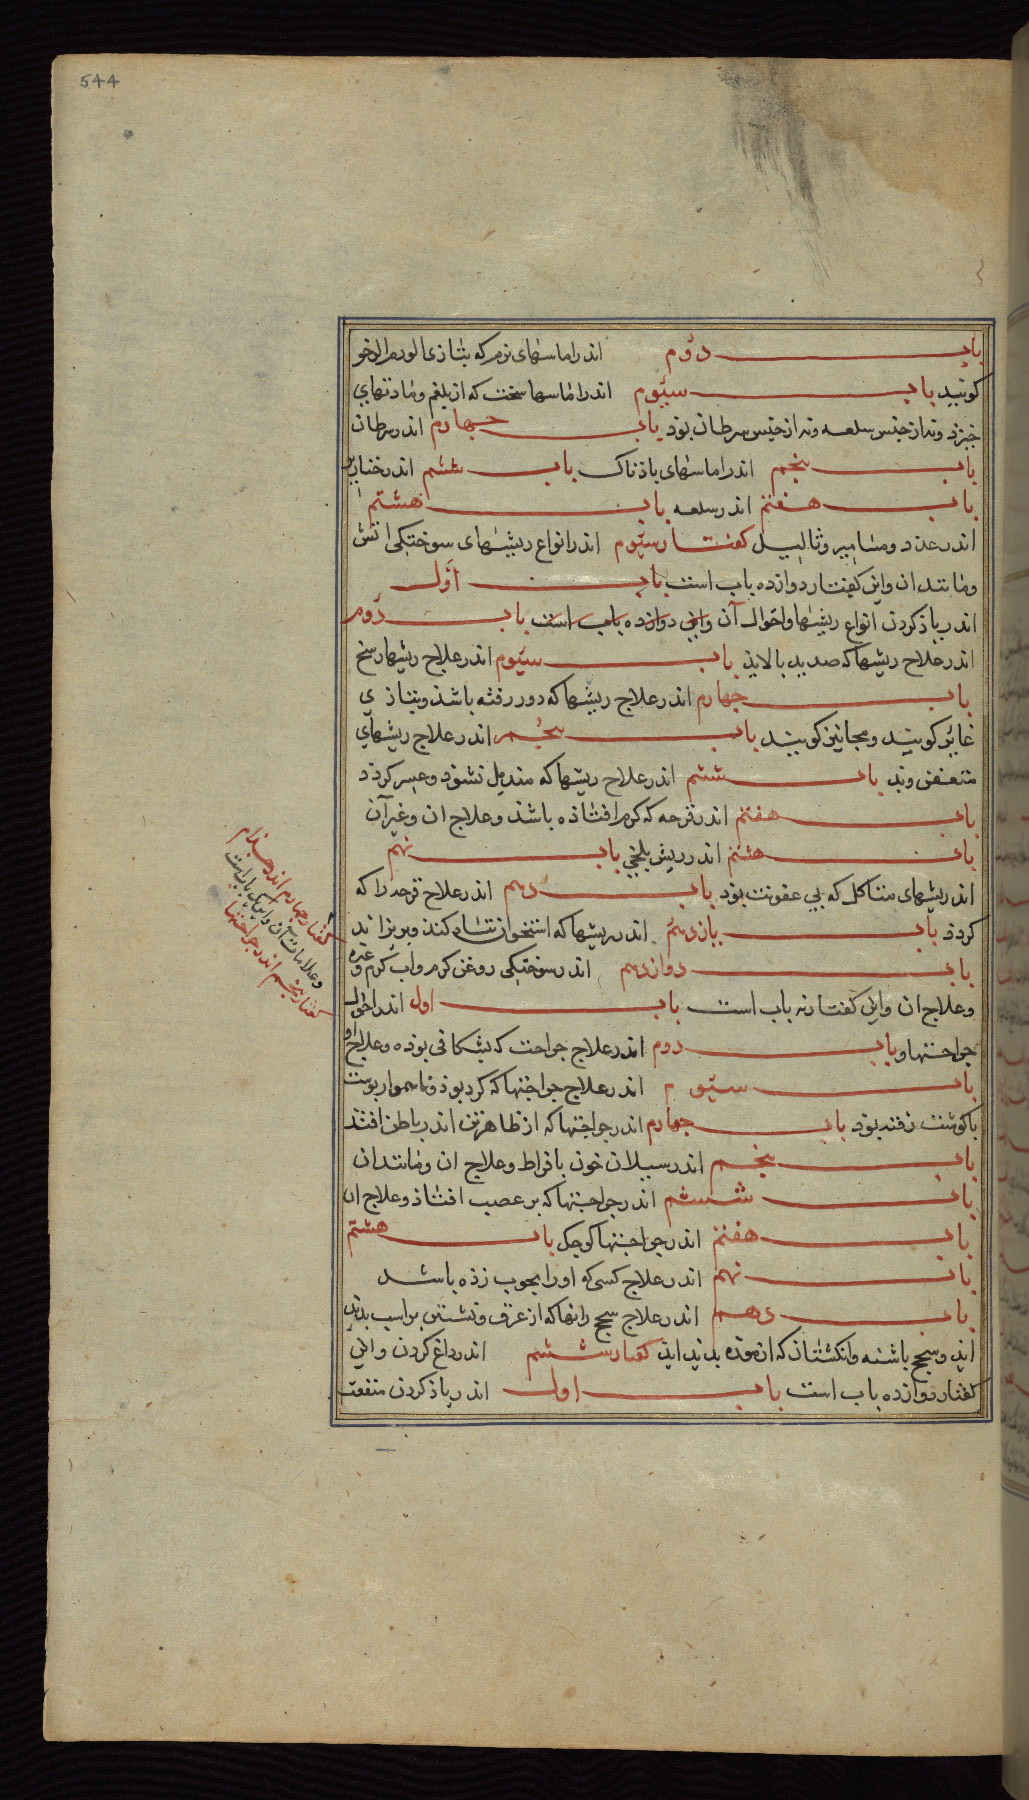 544
باب دوم اندر اماسهای نرم که بتازی الورم الرخو
کویند باب سیوم اندر اماسها سخت که از بلغم و مادتهای
خیزد و نه از جنس سلعه و نه از جنس سرطان بود باب جهارم اندر سرطان
باب بنجم اندر اماسهای باذناک باب ششم اندر خنازیر
باب هفتم اندر سلعه باب هشتم
اندر غدد و مسامیر و ثآلیل کفتار سیوم اندر انواع ریشهای سوختکی اتش
و مانند ان و این کفتار دوازده باب است باب اول
اندر یاذ کردن انواع ریشها و احوال آن و این دوازده باب است باب دوم
اندر علاج ریشها که صدید بالاید باب سیوم اندر علاج ریشها
باب جهارم اندر علاج ریشها که دور رفته باشذ و بتازی
غایر کویند و مجانین کویند باب بنجم اندر علاج ریشهای
متعفن وبد باب ششم اندر علاج ریشها که مندمل نشود و عسر کردد
باب هفتم اندر قرحه که کرم افتاذه باشذ و علاج ان و غیر آن
باب هشتم اندر ریش بلخی باب نهم
اندر ریشهای متاکل که بی عفونت بود باب دهم اندر علاج قرحه را که
کردد باب یازدهم اندر ریشها که استخوان تباه کند و بریزاند
باب دوازدهم اندر سوختکی روغن کرم واب کرم و غیره
و علاج ان و این کفتار نه باب است باب اول اندر احوال
جراحتها و باب دوم اندر علاج جراحت که بشکافی بوذه و علاج او
باب سیوم اندر علاج جراحتها که کرد بوذ و ناهموار بوست
با کوشت رفته بود باب جهارم اندر جراحتها که از ظاهر تن اندر باطن افتد
باب بنجم اندر سیلان خون بافراط و علاج ان و مانند ان
باب ششم اندر جراحتها که بر عصب افتاذ و علاج ان
باب هفتم اندر جراحتها کوجک باب هشتم
باب نهم اندر علاج کسی که او را بجوب زذه باشد
باب دهم اندر علاج سحج رانها که از عرق و نشستن بر اسب بدید
اید و سحج باشنه و انکشتان که از موزه بدید اید کفتار ششم اندر داغ کردن و این
کفتار دوازده باب است باب اول اندر یاذ کردن منفعت
کفتار جهارم اندر جذام
و علامات آن و این یک باب است
کفتار بنجم اندر جراحتها